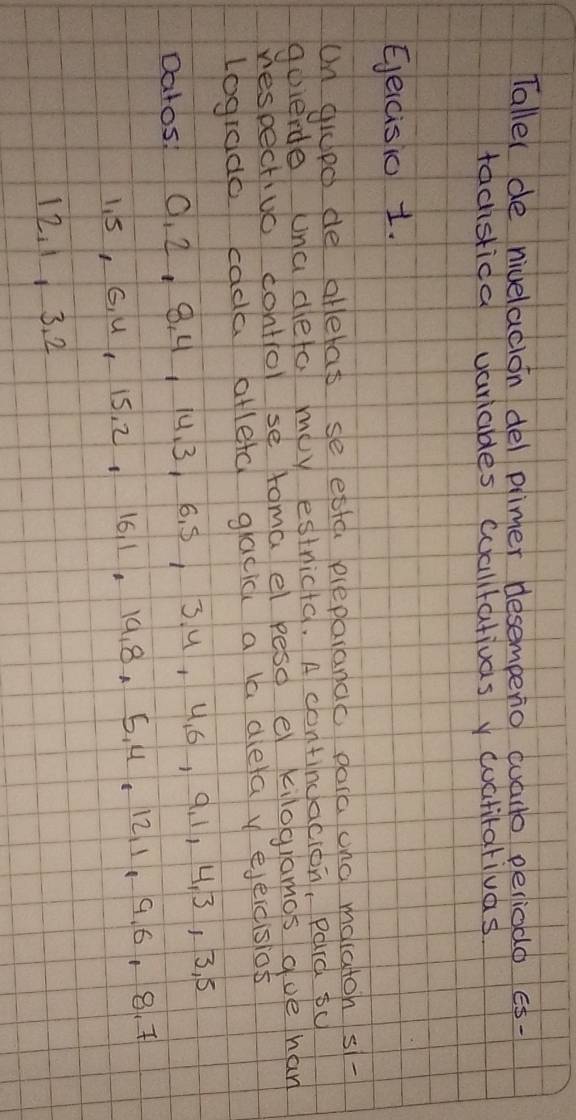 Taller de nivelación del primer desempeño cuarto periodo Es-
tadistica variables cualitativas y cuatitativas.
Ejercisio 1.
Un grupo de atletas se esta preparando para una maratón si-
guiendo una dieta muy estricta. A continuación, para su
respectivo control se toma el peso el kilogramos que han
Logrado cada atleta gracia a la dieta y ejercisios
Datos: 0,2, 8,4, 14,3, 6,5, 3,4, 4,6, 9,1, 4,3, 3,5
1,5, 6,4, 15,2, 16,1, 19,8, 5,4, 12,1, 9,6, 8,7
12,1, 3,2